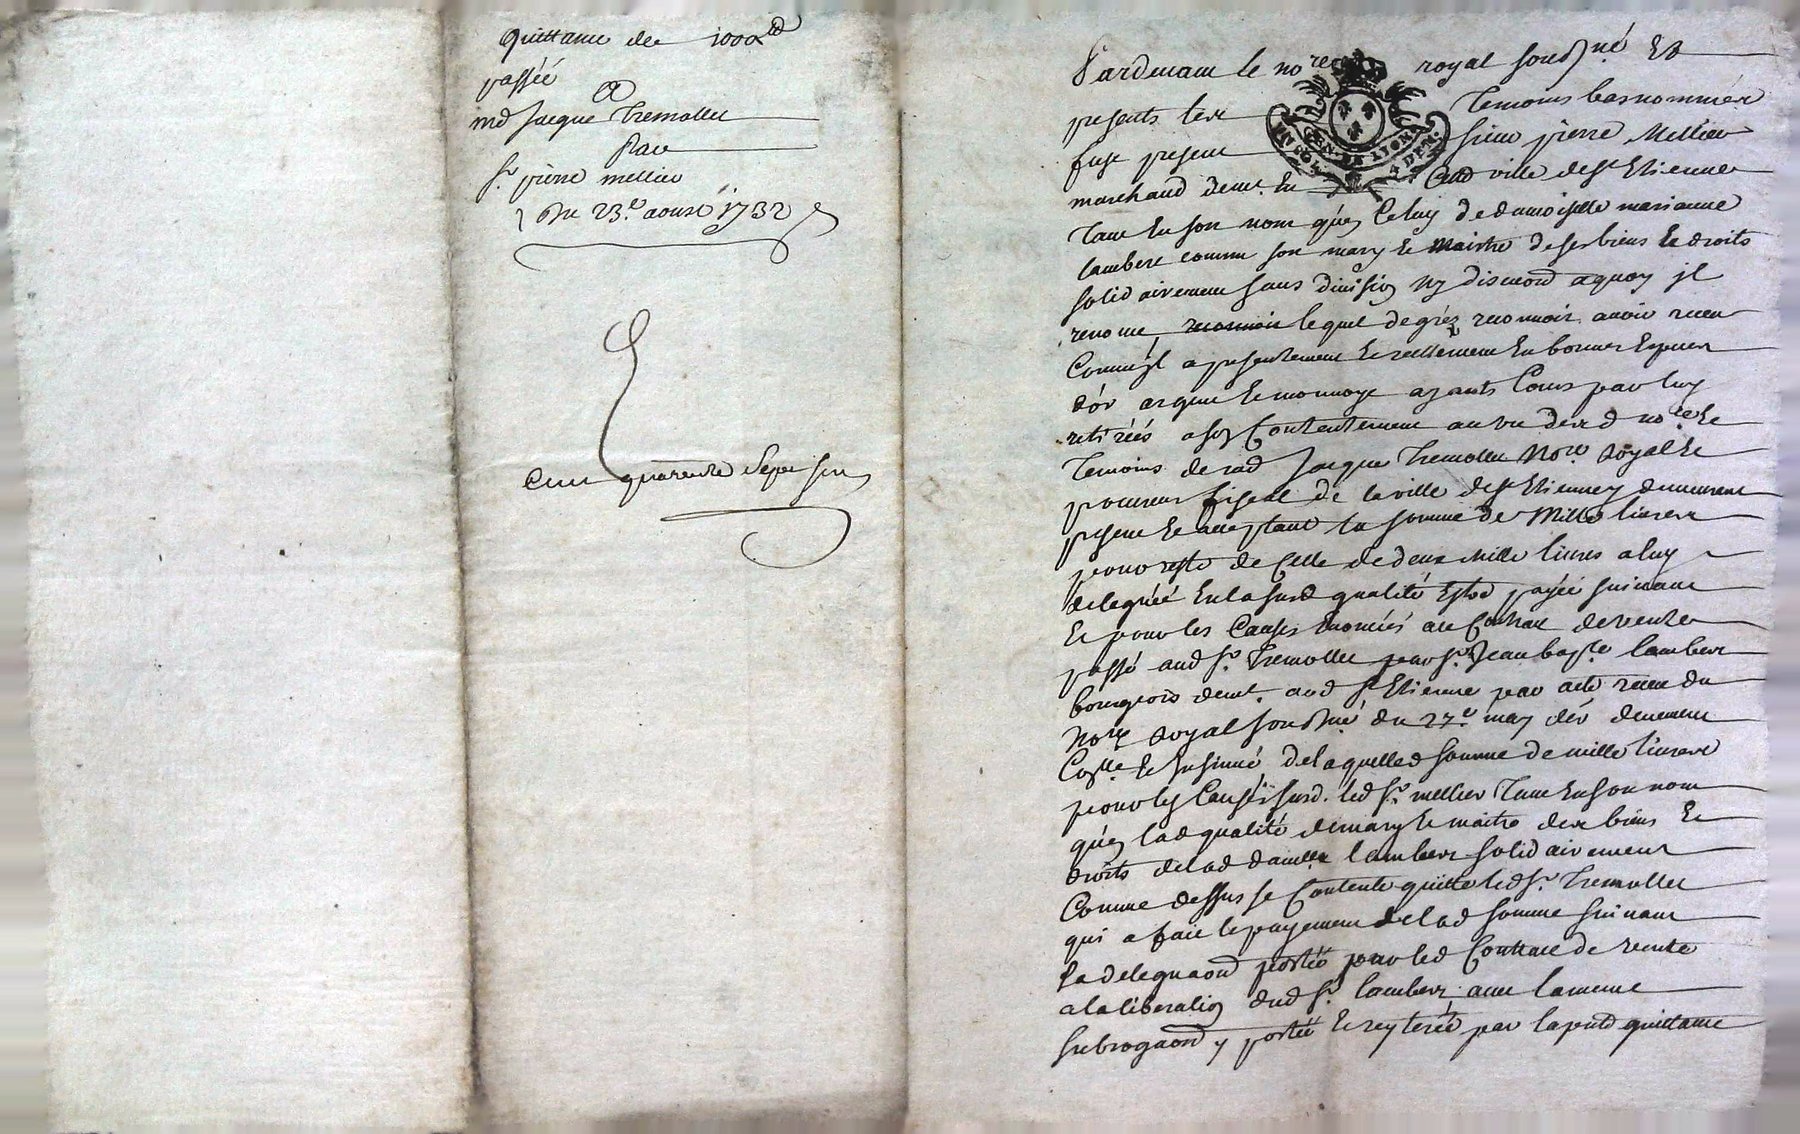 Quittance de 1000ᵗᵗ
passée
a
md Jacque Tremollet
Par
Sʳ pierre mellier
Du 23ᵉ aoust 1732
Cent quarente Sept
Pardevant le noʳᵉ royal sousigné Et
presents les Temoins bas nommés
fust present sieur pierre Mellier
marchand demᵗ En Lad ville de Sᵗ Etienne
Tant En son nom qu'en Celuy de damoiselle marianne
lambert comme son mary Et maistre de ses biens Et droits
solidairement sans division ny discution a quoy il
renonce, lequel de gréz reconnoit avoir receu
Comme il a presentement Et reellement En bonnes Especes
d'or argent Et monnoye ayants Cours par luy
retirées a son Contentement au vu desd noʳᵉ Et
Temoins de Jacque Tremollet Noʳᵉ Royal Et
procureur fiscal de la ville de Sᵗ Etienne y demeurant
present Et acceptant la somme de Mille livres
pour reste de Celle de deux Mille livres a luy
deleguée En la susd qualité payée suivant
Et pour les Causes Enoncées au Contrat de vente
passé aud Sʳ Tremollet par Sʳ Jean bapᵗᵉ lambert
bourgeois demᵗ aud Sᵗ Etienne par acte receu du
Noʳᵉ Royal sousigné du 27ᵉ may dᵉʳ deuement
Coˡˡᵉ Et Insinué de laquelle somme de mille livres
pour les Causes susd. led Sʳ mellier Tant En son nom
qu'en lad qualité de mary Et maitre des biens Et
droits de lad damˡˡᵉ lambert solidairement
Comme dessus se Contente quitte led Sʳ Tremollet
qui a fait le payement de lad somme suivant
La delegaon portée par led Contract de vente
a la liberation dud Sʳ lambert, avec la meme
subrogaon y portée Et reyterée par la pnte quittance